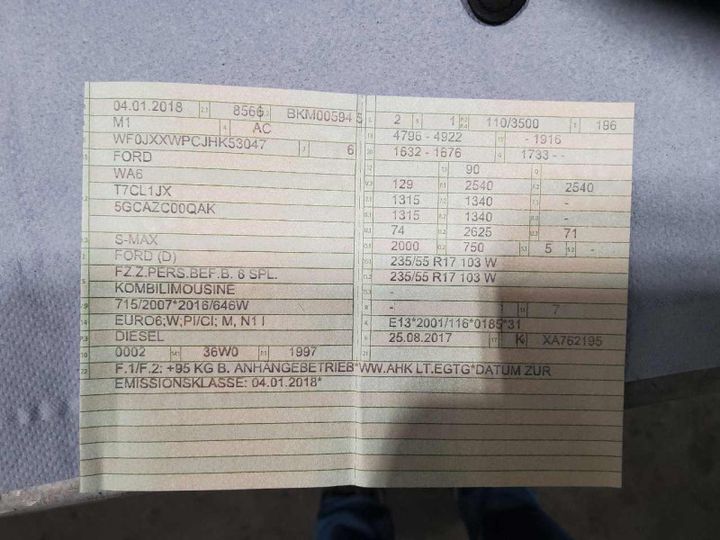 04.01.2018 8566 BKM005945
M1 AC
WF0JXXWPCJHK53047 6
FORD
WA6
T7CL1JX
5GCAZC00QAK
S-MAX
FORD (D)
FZ.Z.PERS.BEF.B. 6 SPL.
KOMBILIMOUSINE
715/2007*2016/646W
EURO6;W,PI/CI; M, N1 I
DIESEL
0002 36W0 1997
2 1 110/3500 196
4796 - 4922 - 1916
1632 - 1676 1733 - -
90
129 2540 2540
1315 1340 -
1315 1340 -
74 2625 71
2000 750 5 -
235/55 R17 103 W
235/55 R17 103 W
-
- 7
E13*2001/116*0185*31
25.08.2017 K XA762195
F.1/F.2: +95 KG B. ANHANGEBETRIEB*WW.AHK LT.EGTG*DATUM ZUR
EMISSIONSKLASSE: 04.01.2018*